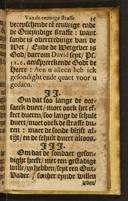 Van de eeuwige Straffe 35
verepschende es eeuwige ende
de Oneyndige straffe: want
sonde is overtredinge van de
Wet / Ende de Wetgever is
God / daerom David spr: Ps.
51.6. aensprekende God de
Heere: Aen u alleen heb ick
gesondight ende quaet voor u
gedaen.
II.
Om dat soo lange de oor-
saeck duert / moet oock het ef-
fect dueren / soo lange de schult
duert / moet oock de straffe du-
ren: maer de sonde blijft al-
tijt / en de schult duert altoos.
III.
Om dat de sondaer geson-
dight heeft / met een gestadige
wille /
sonder eynde willen